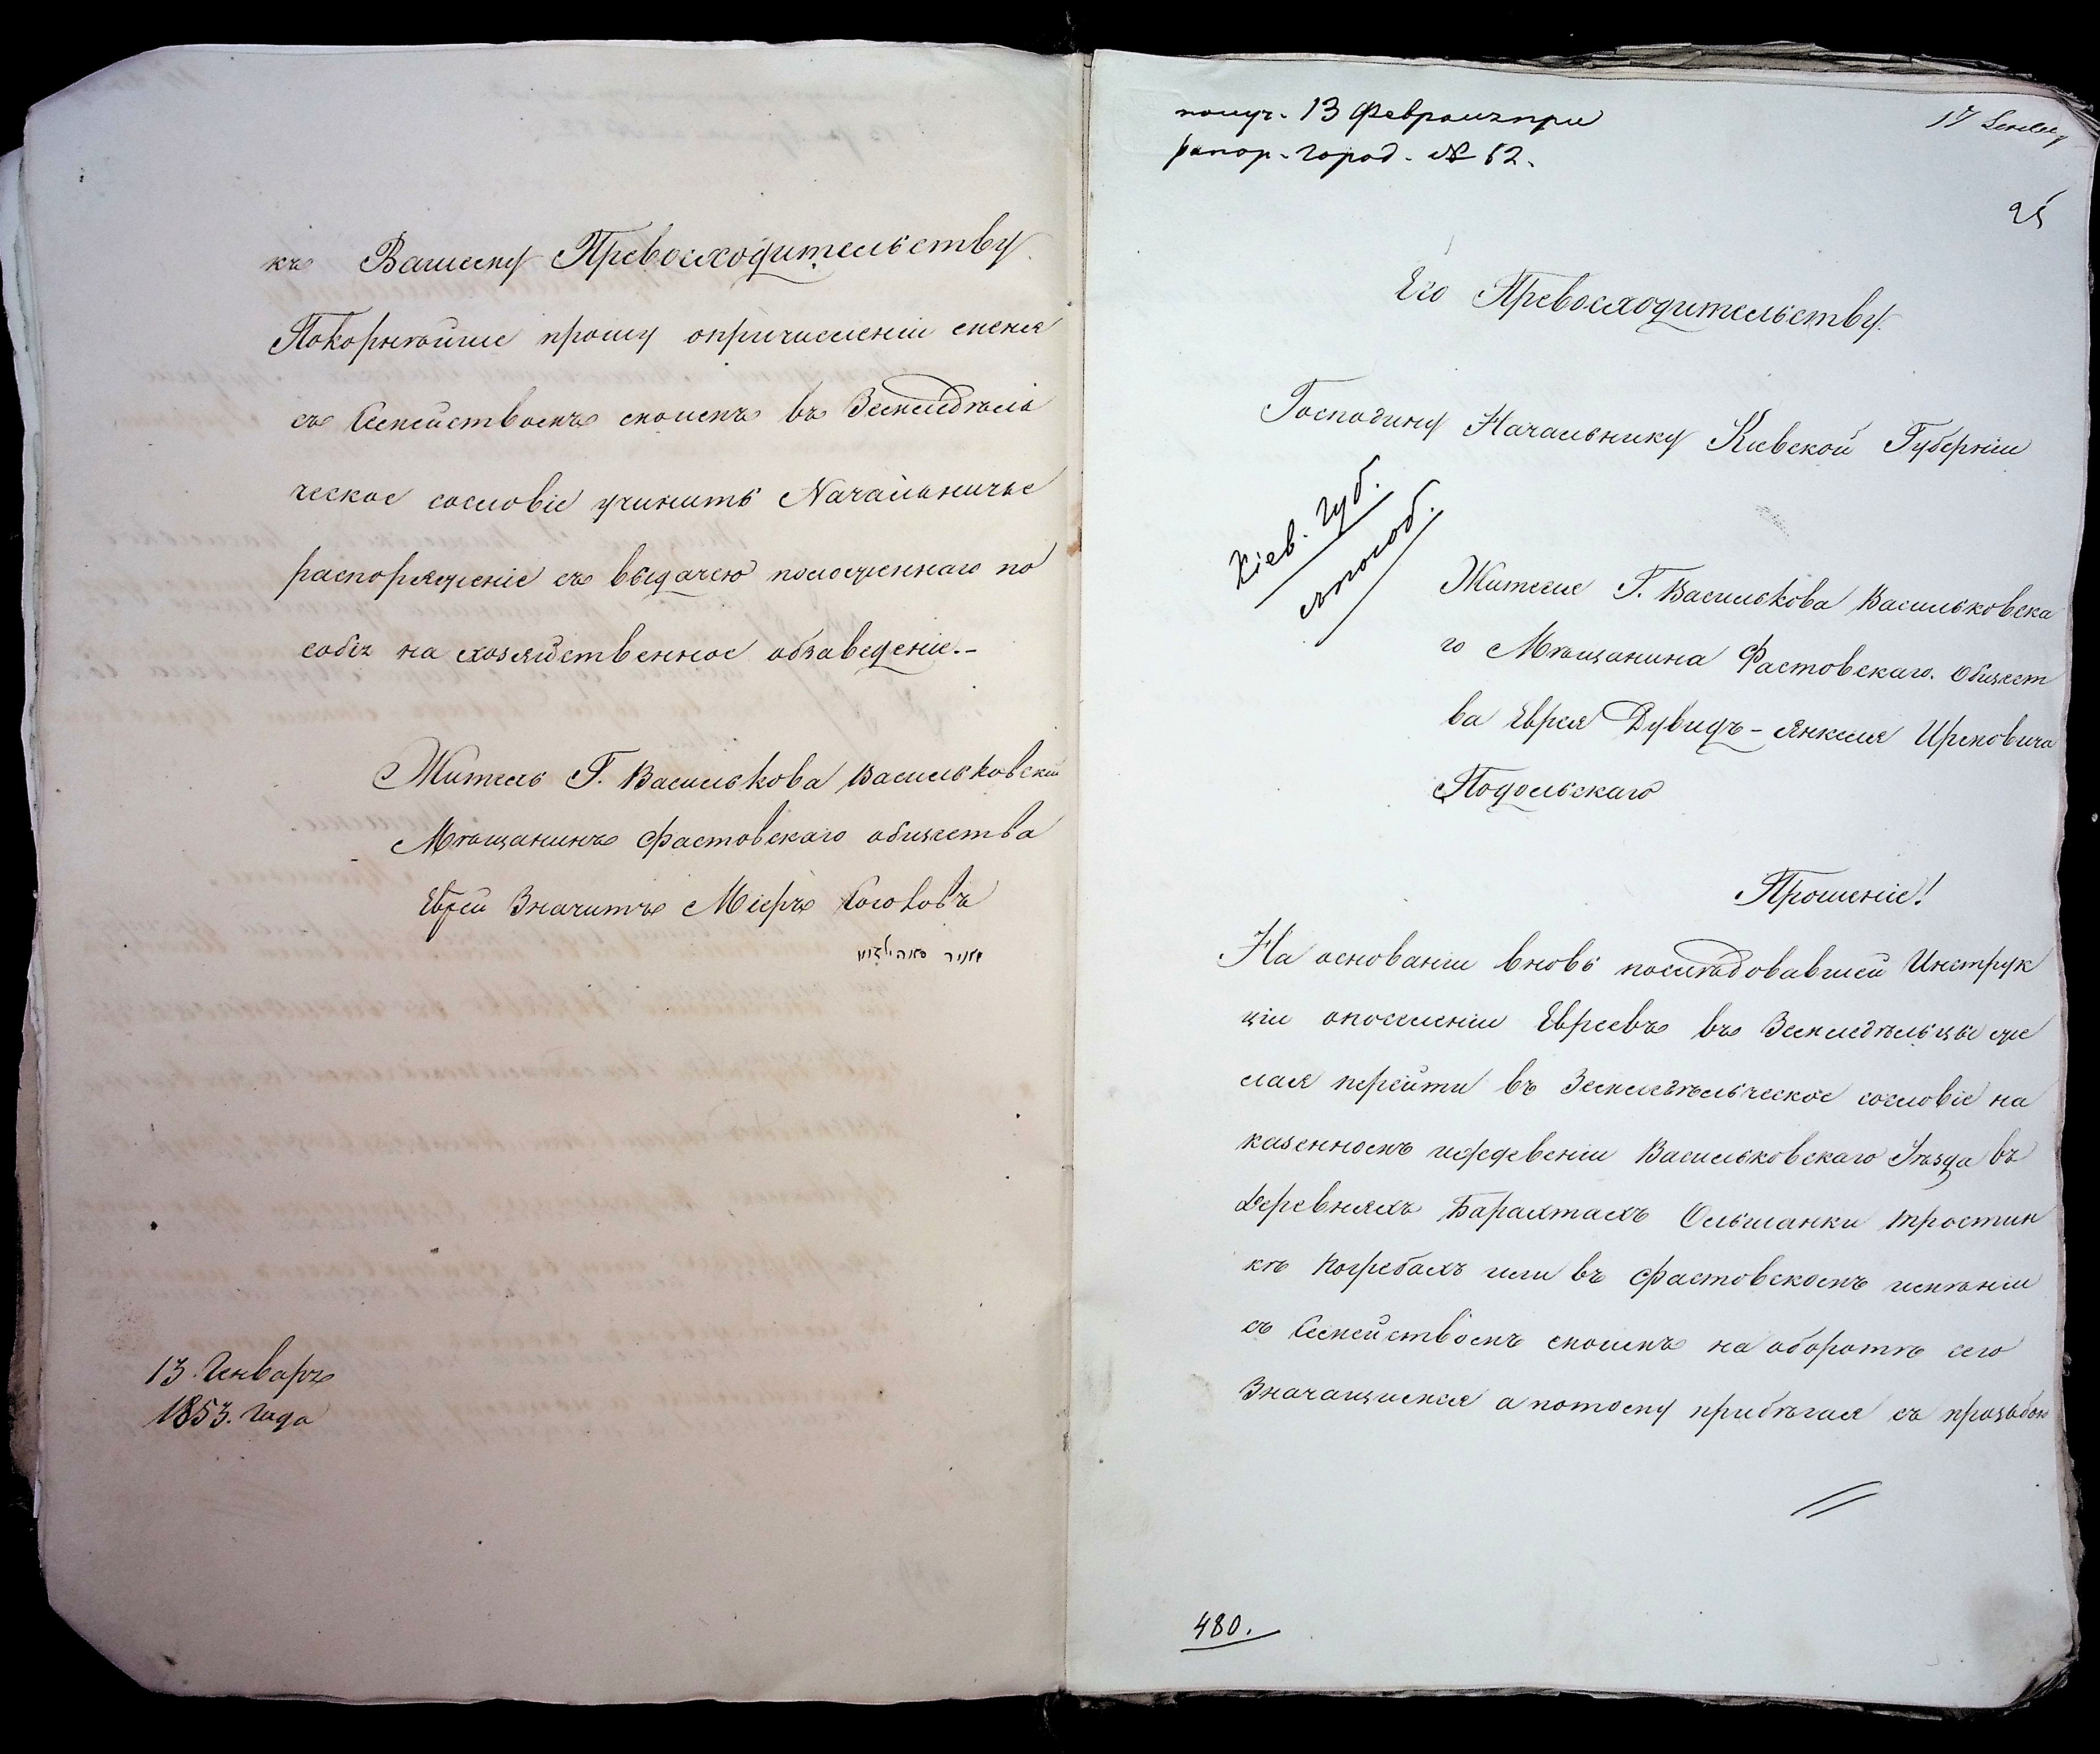 къ Вашему Превосходительству
Покорнѣйше прошу опричисленіи меня
съ Семействомъ моимъ въ Земледѣль
ческое сословіе учинить Начальничье
распоряженіе съ выдачею положеннаго по
собія на хозяйственное обзаведеніе.-
Житель Г. Василькова Васильковскій
Мѣщанинъ Фастовскаго общества
Еврей Значитъ Міеръ
13. Генваря
1853. Года
получ. 13 Февраля при
рапор. город. № 62.
17
25
Его Превосходительству.
Господину Начальнику Кіевской Губерніи
Кіев. Губ.
Жителя Г. Василькова Васильковска
го Мѣщанина Фастовскаго. Общест
ва Еврея Дувидъ-Янкеля
Подольскаго
Прошеніе!
На основаніи вновь послѣдовавшей Инструк
ціи опоселеніи Евреевъ въ Земледѣльцы же
лая перейти въ Земледѣльческое сословіе на
казенномъ иждевеніи Васильковскаго Уѣзда въ
Деревняхъ Барахтахъ Ольшанки Тростин
кѣ Погребахъ или въ Фастовскомъ имѣніи
съ Семействомъ моимъ на оборотѣ сего
Значащимся а потому прибѣгая съ прозьбою
480.